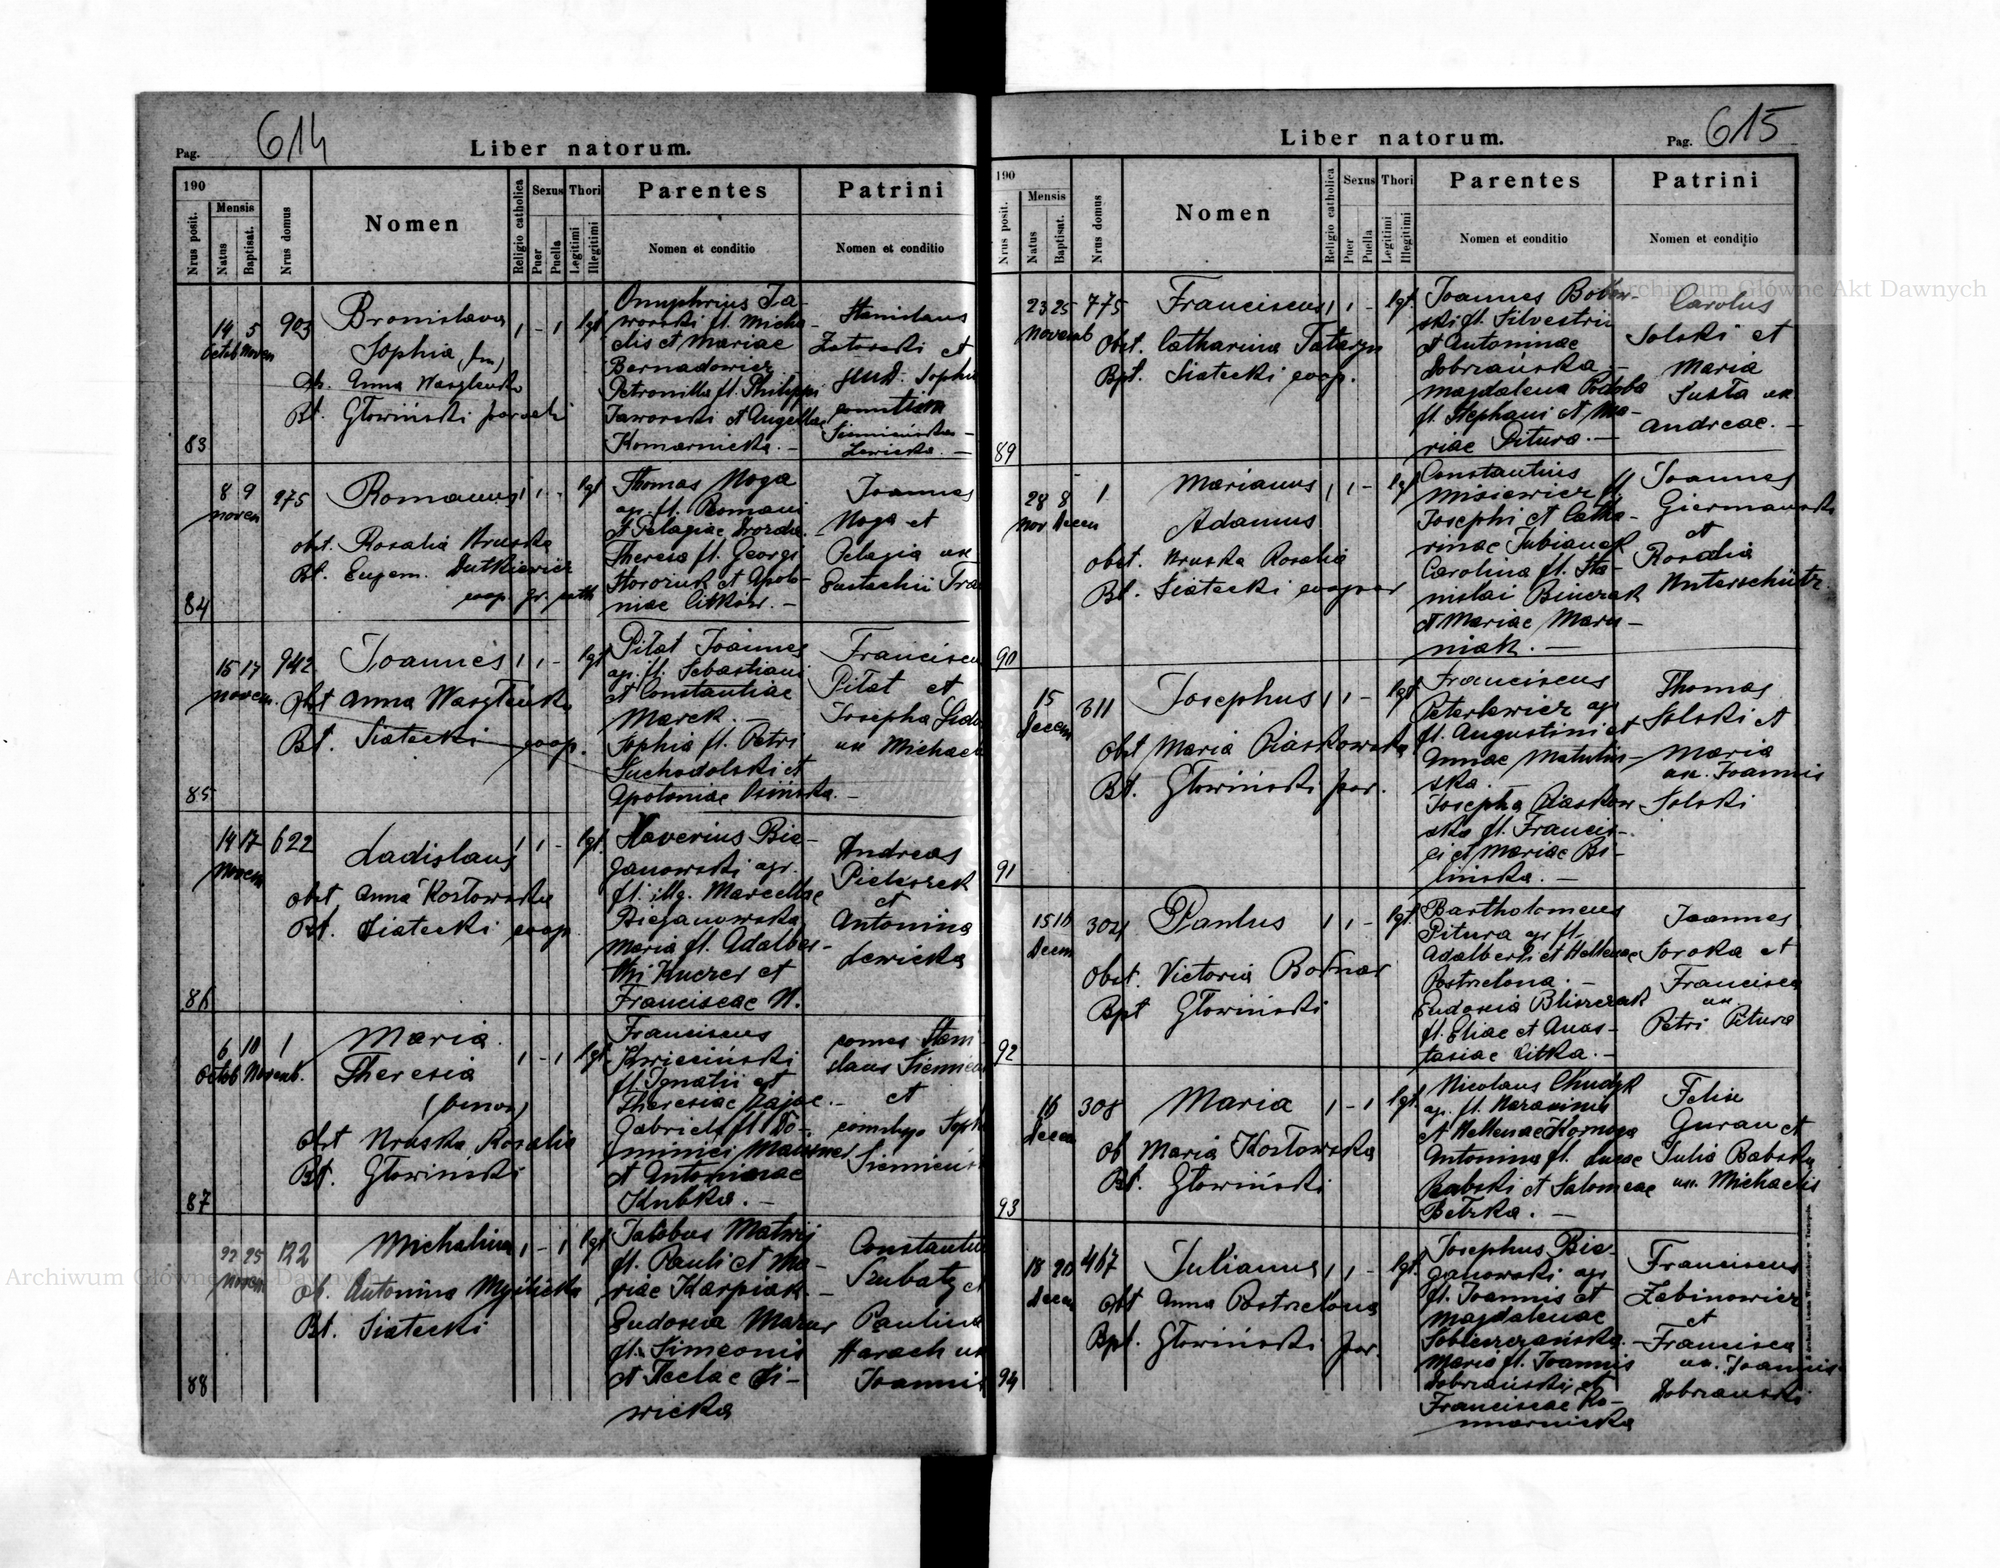 Pag. 614
Liber natorum.
190
Nrus posit.
Mensis
Natus
Baptisat.
Nrus domus
Nomen
Religio catholica
Sexus
Puer
Puella
Thori
Legitimi
Illegitimi
Parentes
Nomen et conditio
Patrini
Nomen et conditio
83
14 5
Octob Novem
903
Bronislava
Sophia
Ob. Anna
Bt. Głowiński parochi
1 - 1 lgt
Onuphrius Ja-
worski fl. Micha-
elis et Mariae
Bernadowicz
Petronilla fl. Philippi
Jaworski et Angellae
Komarnicka. -
Stanislaus
Zatorski et
Sophia
comitissa
Siemieńska -
Lewicka. -
84
8 9
novem
975
Romanus
obst. Rosalia Hruska
Bt. Eugem. Dutkiewicz
coop. gr. cath
1 1 - lgt
Thomas Noga
agr. fl. Romani
et Pelagiae Drozda.
Theresa fl. Georgi
et Apolo-
niae Citkow. -
Joannes
Noga et
Pelagia ux
Eustachii
85
15 17
novem.
942
Joannes
Obst Anna
Bt. Siatecki coop.
1 1 - lgt
Pitat Joannes
agr. fl. Sebastiani
et Constantiae
Marek. -
Sophia fl. Petri
Suchodolski et
Apoloniae Osińska. -
Pitat et
Josepha
ux Michael
86
14 17
Novem
622
Ladislaus
obst. Anna Kostowska
Bt. Siatecki coop
1 1 - lgt
Xaverius Bie-
janowski agr.
fl. illg. Marcellae
Biejanowska
Maria fl. Adalber-
thi Kuczer et
Franciscae N.
Andreas
et
Antonina
Lewicka
87
6 10
Octob Novemb.
1
Maria
Theresia
Obst Hruska Rosalia
Bt. Głowiński
1 - 1 lgt
Franciscus
Kwieciński
fl. Ignatii et
Theresiae Zając. -
Gabriela fl. Do-
minici
et Antoninae
Kubka. -
comes Stani
slaus
et
88
22 25
Novem
122
Michalina
Ob. Antonina
Bt. Siatecki
1 - 1 lgt
Jacobus Matwij
fl. Pauli et Ma-
riae Karpiak. -
Eudoxia Mazur
fl. Simeonis
et Theclae Si-
wicka
et
Paulina
Harach ux
Joannis
Liber natorum.
Pag. 615
190
Nrus posit.
Mensis
Natus
Baptisat.
Nrus domus
Nomen
Religio catholica
Sexus
Puer
Puella
Thori
Legitimi
Illegitimi
Parentes
Nomen et conditio
Patrini
Nomen et conditio
89
23 25
Novemb
775
Franciscus
Obst. Catharina Tataryn
Bpt. Siatecki coop.
1 1 - lgt.
Joannes Bobow-
ski fl. Silvestrii
et Antoninae
Dobrzańska -
Magdalena Podoba
fl. Stephani et Ma-
riae Pitura. -
Carolus
Solski et
Maria
Susta ux
Andreae. -
90
28 8
Nov Decem
1
Marianus
Adamus
obst. Hruska Rosalia
Bt. Siatecki cooper
1 1 - lgt
Constantius
Misiewicz fl
Josephi et Catha-
rinae
Carolina fl. Sta-
nislai
et Mariae Maru-
niak. -
Joannes
Giermanski
et
Rosalia
Unterschütz
91
15
Decem
311
Josephus
Obst Maria Piaskowska
Bt. Głowiński par.
1 1 - lgt
Franciscus
Peterkewicz agr
fl. Augustini et
Annae
ska. -
Josepha Piaskow
ska fl. Francis-
ci et Mariae Bi-
linska. -
Thomas
Solski et
Maria
ux. Joannis
Solski
92
15 16
Decem
304
Paulus
Obst. Victoria Bodnar
Bpt Głowiński
1 1 - lgt.
Bartholomeus
Pitura agr fl.
Adalberti et Hellenae
Postrelona. -
Eudoxia
fl. Eliae et Anas-
tasiae Citka. -
Joannes
Soroka et
Francisca
ux.
Petri Pitura
93
16
Decem
308
Maria
Ob Maria Kostowska
Bt. Głowiński
1 - 1 lgt.
Nicolaus Chudyk
agr. fl.
et Hellenae
Antonina fl. Lucae
Babski et Salomeae
Betzka. -
Felix
Guran et
Julia Babska
ux. Michaelis
94
18 20
Decem
467
Julianus
Obt Anna Postrelona
Bpt. Głowiński par.
1 1 - lgt.
Josephus Bie-
janowski agr
fl. Joannis et
Magdalenae
Maria fl. Joannis
Dobrzański et
Franciscae Ko-
marnicka
Franciscus
et
Francisca
ux. Joannis
Dobrzanski
Archiwum Główne Akt Dawnych
Archiwum Główne Akt Dawnych